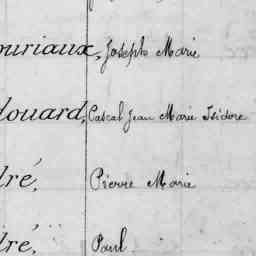 ouriaux, Joseph Marie
douard, Pascal Jean Marie Isidore
dré, Pierre Marie
dré, Paul